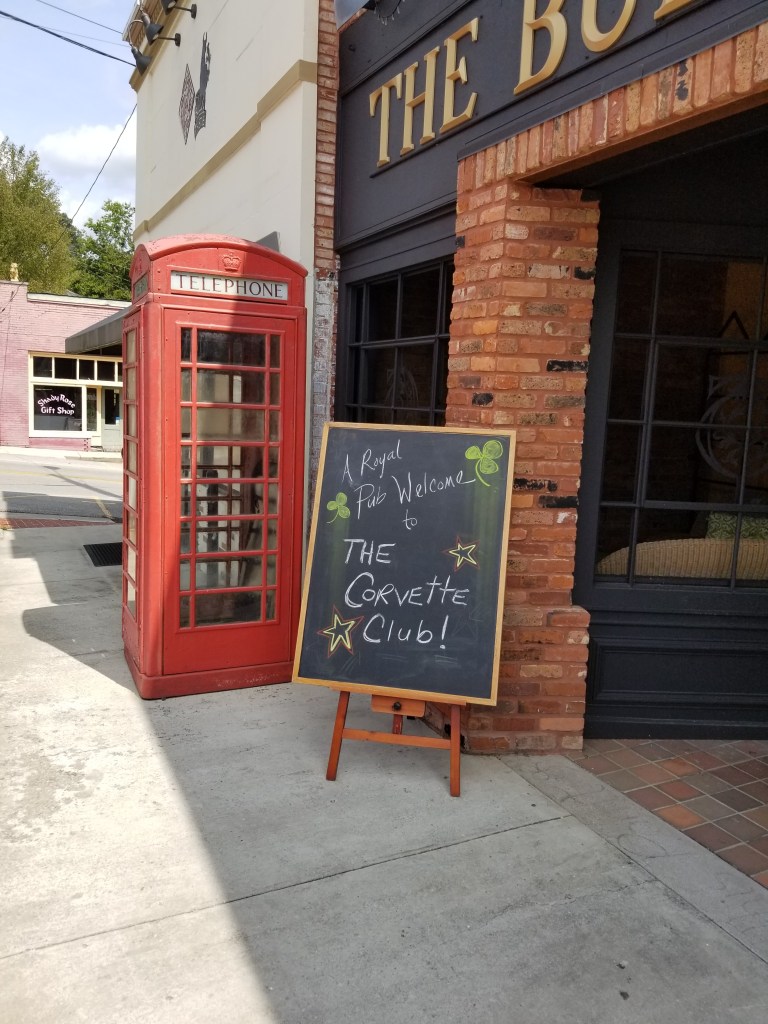 THE
TELEPHONE
Shady Rose
Gift Shop
A Royal
Pub Welcome
to
THE
Corvette
Club!